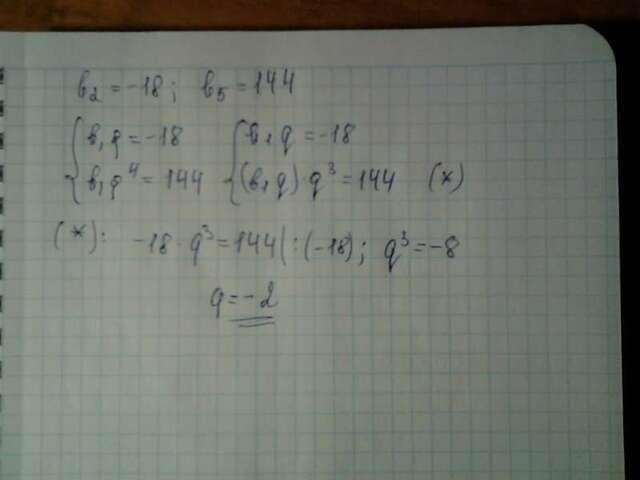 b₂ = -18; b₅ = 144
{ b₁q = -18 { b₁q = -18
{ b₁q⁴ = 144 { (b₁q)·q³ = 144 (*)
(*): -18·q³ = 144 | :(-18); q³ = -8
q = -2